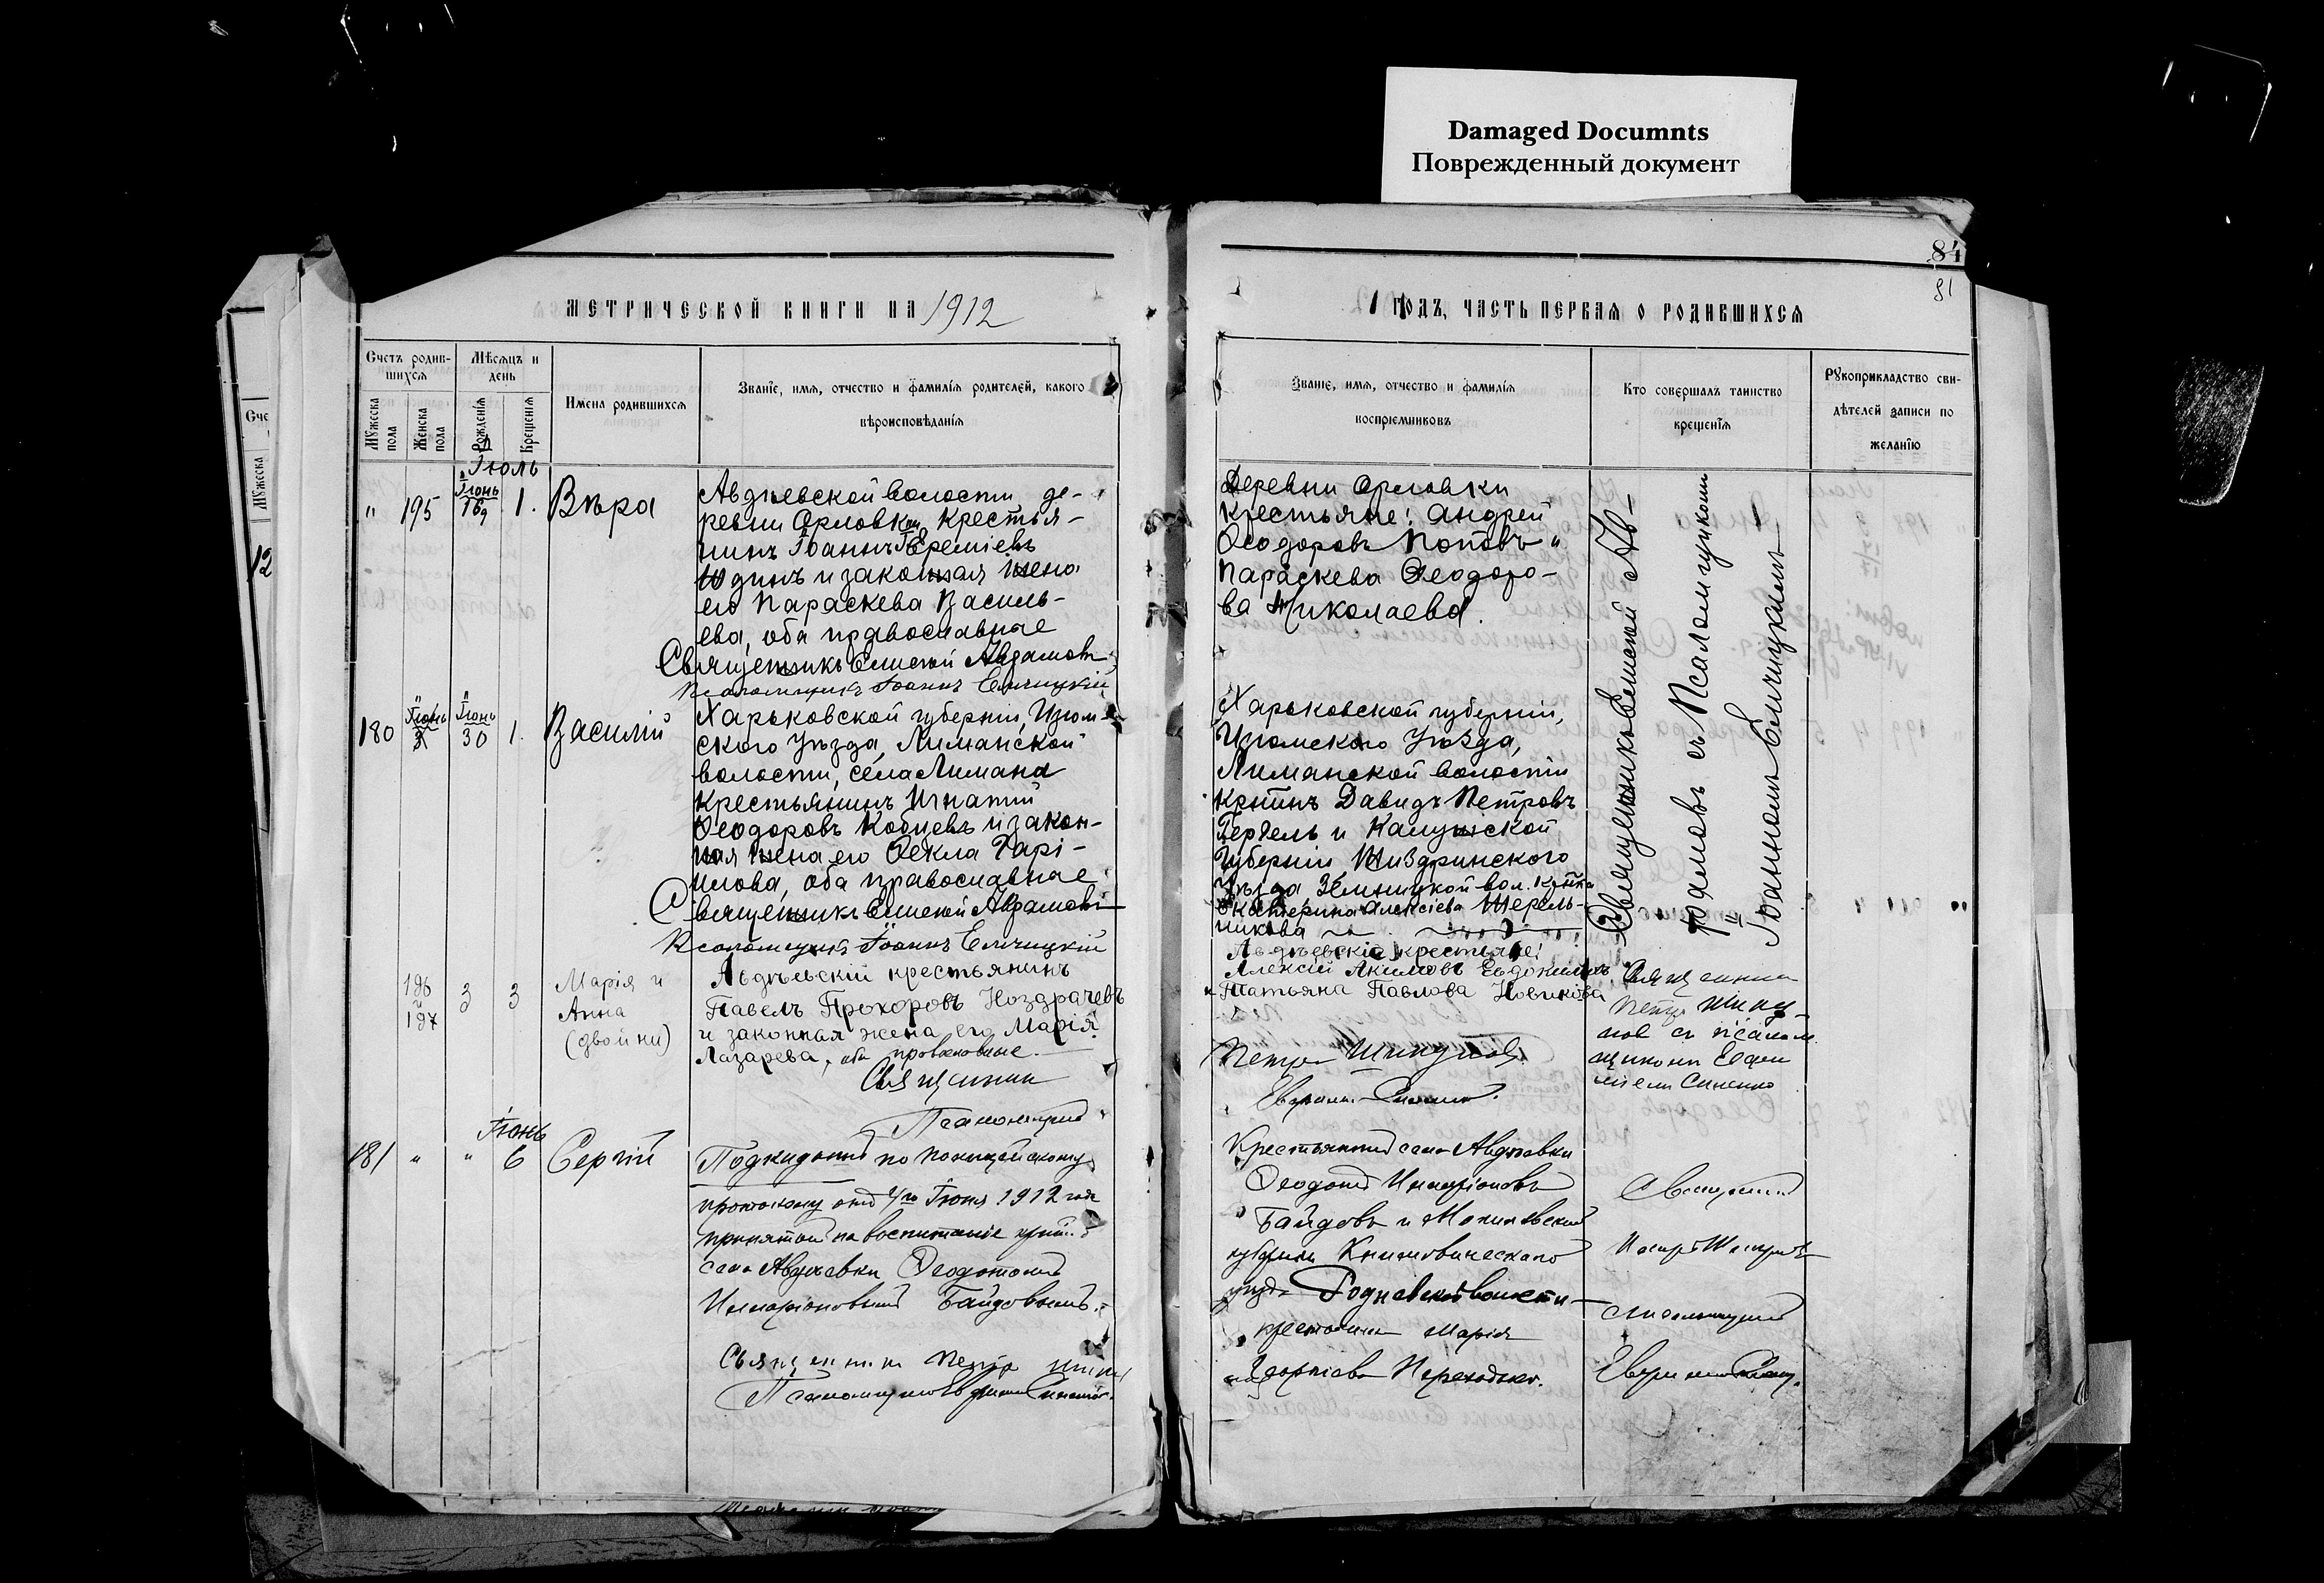 Damaged Documnts
Поврежденный документ
84
81
МЕТРИЧЕСКОЙ КНИГИ НА 1912
ГОДЪ, ЧАСТЬ ПЕРВАЯ О РОДИВШИХСЯ
Счетъ родив-
шихся
Мужеска пола
Женска пола
Мѣсяцъ и
день
Рожденія
Крещенія
Имена родившихся
Званіе, имя, отчество и фамилія родителей, какого
вѣроисповѣданія
Званіе, имя, отчество и фамилія
воспріемниковъ
Кто совершалъ таинство
крещенія
Рукоприкладство сви-
дѣтелей записи по
желанію
Счe
Мужеска
12
Іюль
" 195 Іюнь 1. Вѣра
Авдѣевской волости де-
ревни Орловкои, крестья-
нинъ Іоаннъ Ереміевъ
Юдинъ и законная жена
его Параскева Василь-
ева, оба православные
Священникъ Елисей Авдамовъ
Псаломщикъ Іоаннъ Єлчицкій
Деревни Орловки
крестьяне: Андрей
Ѳеодоровъ Поповъ и
Параскева Ѳеодоро-
ва Николаева.
Священникъ Елисей
съ Псаломщикомъ
Іоанномъ Елчицкимъ
180 Іюнь 30 1. Василій
Харьковской губерніи, Изюм-
ского Уѣзда, Лиманской
волости, села Лимана
крестьянинъ Игнатій
Ѳеодоровъ Кобцевъ и закон-
ная жена его Ѳекла Гарі-
илова, оба православные
Священникъ Елисей Авдамовъ
Псаломщикъ Іоаннъ Елчицкій
Харьковской губерніи,
Изюмского Уѣзда,
Лиманской волости
крт҃инъ Давидъ Петровъ
и Калужской
Губерніи, Жиздринского
Уѣзда вол.
Екатерина Алексіева
никова
196
и
197
3 3
Марія и
Анна
(двойни)
Авдѣевскій крестьянинъ
Павелъ Прохоровъ Ноздрачевъ
и законная жена его Марія
Лазарева, оба православные.
Священник
Псаломщик
Авдѣевскіе крестьяне:
Алексій Акимовъ Евдокимовъ
Татьяна Павлова Новикова
Петръ Шипулов
Священник
Петр Шипу-
лов съ псалом
щиком Евфи
міем Синенко
Іюнь
181 " " 6 Сергій
Подкидышъ по полицейскому
протоколу отъ 4го Іюня 1912 года
принятый на воспитаніе
села Авдѣевки Ѳеодотомъ
Иларіоновымъ Байдовымъ.
Священник Петръ
Псаломщикъ Евфим Синенко.
Крестьянинъ села Авдѣевки
Ѳеодотъ Иларіоновъ
Байдовъ и Могилевской
губерніи Климовическаго
уѣзда Родневской волости
крестьянка Марія
Георгіева Переходько.
Священникъ